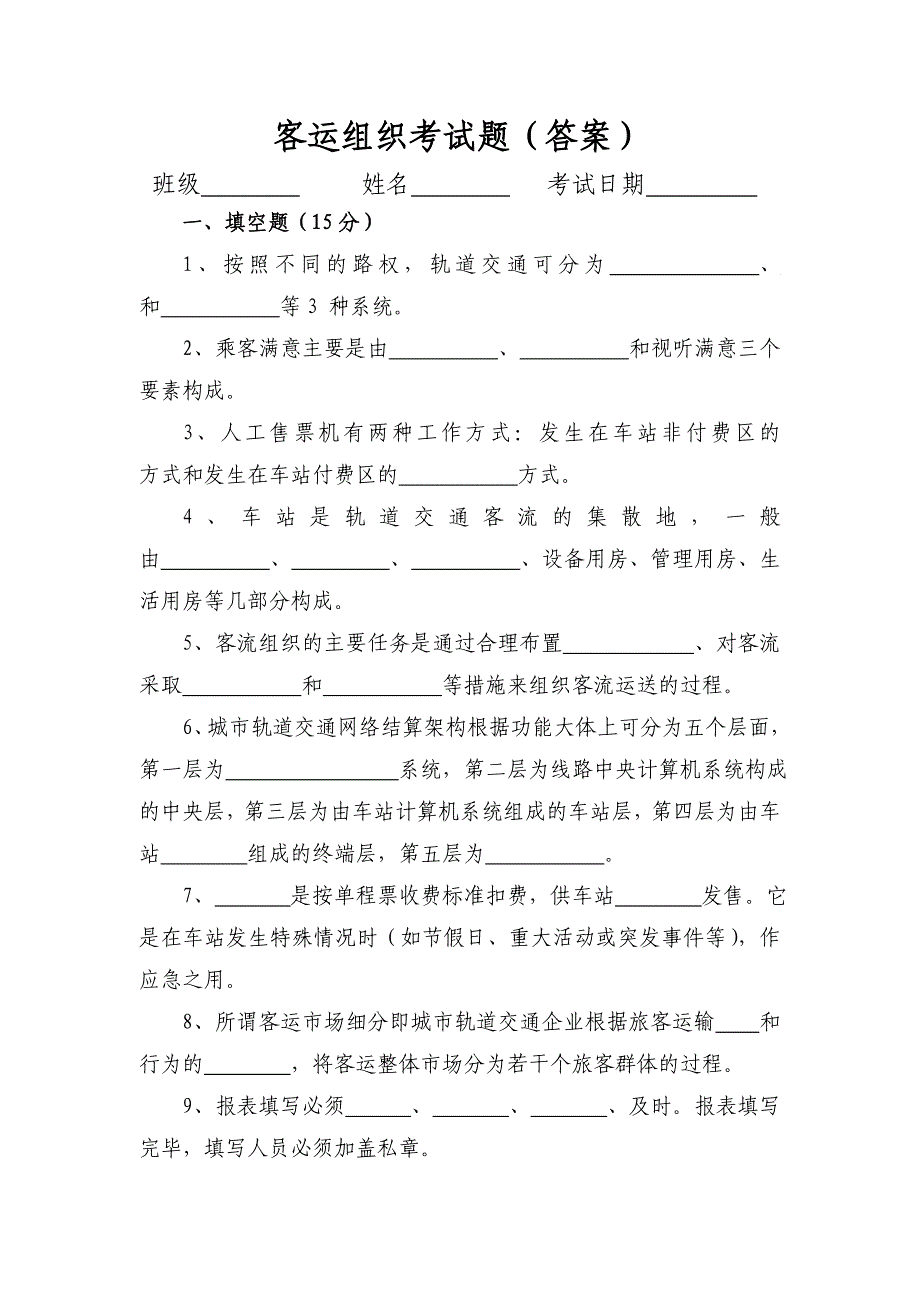 客运组织考试题（答案）
班级________ 姓名________ 考试日期_________
一、填空题（15分）
1、按照不同的路权，轨道交通可分为______________、
和___________等3 种系统。
2、乘客满意主要是由__________、__________和视听满意三个
要素构成。
3、人工售票机有两种工作方式：发生在车站非付费区的
方式和发生在车站付费区的___________方式。
4、车站是轨道交通客流的集散地，一般
由__________、_________、__________、设备用房、管理用房、生
活用房等几部分构成。
5、客流组织的主要任务是通过合理布置____________、对客流
采取___________和___________等措施来组织客流运送的过程。
6、城市轨道交通网络结算架构根据功能大体上可分为五个层面，
第一层为________________系统，第二层为线路中央计算机系统构成
的中央层，第三层为由车站计算机系统组成的车站层，第四层为由车
站________组成的终端层，第五层为___________。
7、_______是按单程票收费标准扣费，供车站________发售。它
是在车站发生特殊情况时（如节假日、重大活动或突发事件等），作
应急之用。
8、所谓客运市场细分即城市轨道交通企业根据旅客运输____和
行为的________，将客运整体市场分为若干个旅客群体的过程。
9、报表填写必须______、_______、_______、及时。报表填写
完毕，填写人员必须加盖私章。